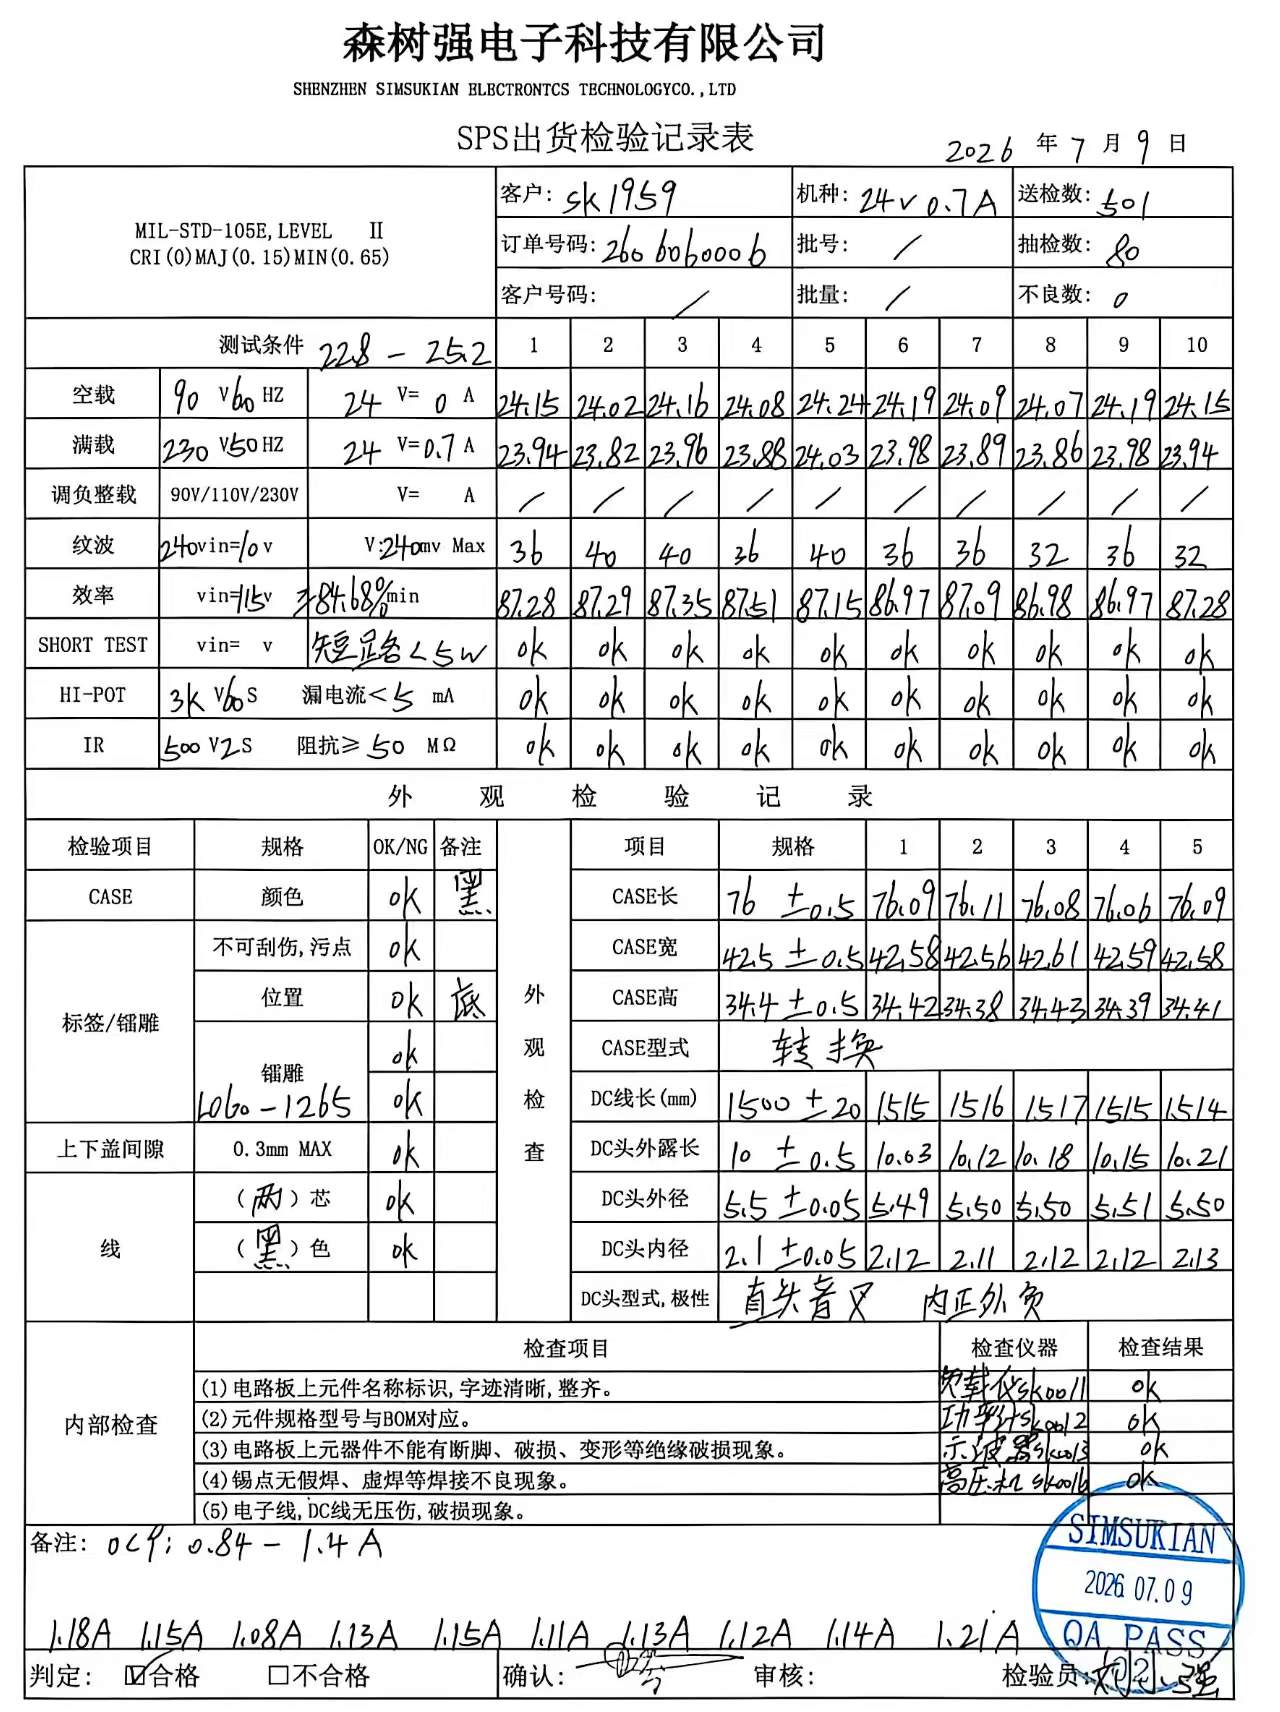 森树强电子科技有限公司
SHENZHEN SIMSUKIAN ELECTRONTCS TECHNOLOGYCO.,LTD
SPS出货检验记录表
2026 年 7 月 9 日
MIL-STD-105E,LEVEL Ⅱ
CRI(0)MAJ(0.15)MIN(0.65)
客户: SK1959 机种: 24V 0.7A 送检数: 501
订单号码: 2606060006 批号: / 抽检数: 80
客户号码: / 批量: / 不良数: 0
测试条件 22.8 - 25.2 1 2 3 4 5 6 7 8 9 10
空载 90 V60 HZ 24 V= 0 A 24.15 24.02 24.16 24.08 24.24 24.19 24.09 24.07 24.19 24.15
满载 230 V50 HZ 24 V=0.7 A 23.94 23.82 23.96 23.88 24.03 23.98 23.89 23.86 23.98 23.94
调负整载 90V/110V/230V V= A / / / / / / / / / /
纹波 240vin=10v V:240mv Max 36 40 40 36 40 36 36 32 36 32
效率 vin=115v ≥84.68%min 87.28 87.29 87.35 87.51 87.15 86.97 87.09 86.98 86.97 87.28
SHORT TEST vin= v 短路<5W ok ok ok ok ok ok ok ok ok ok
HI-POT 3K V60S 漏电流<5 mA ok ok ok ok ok ok ok ok ok ok
IR 500 V2S 阻抗≥50 MΩ ok ok ok ok ok ok ok ok ok ok
外观检验记录
检验项目 规格 OK/NG 备注 项目 规格 1 2 3 4 5
CASE 颜色 ok 黑 CASE长 76 ±0.5 76.09 76.11 76.08 76.06 76.09
不可刮伤,污点 ok CASE宽 42.5 ±0.5 42.58 42.56 42.61 42.59 42.58
标签/镭雕 位置 ok 底 外观检查 CASE高 34.4 ±0.5 34.42 34.38 34.43 34.39 34.41
镭雕 ok CASE型式 转换
1060-1265 ok DC线长(mm) 1500 ±20 1515 1516 1517 1515 1514
上下盖间隙 0.3mm MAX ok DC头外露长 10 ±0.5 10.03 10.12 10.18 10.15 10.21
线 (两)芯 ok DC头外径 5.5 ±0.05 5.49 5.50 5.50 5.51 5.50
(黑)色 ok DC头内径 2.1 ±0.05 2.12 2.11 2.12 2.12 2.13
DC头型式,极性 直头音叉 内正外负
内部检查 检查项目 检查仪器 检查结果
(1)电路板上元件名称标识,字迹清晰,整齐。 负载仪SK0011 ok
(2)元件规格型号与BOM对应。 功率计SK0012 ok
(3)电路板上元器件不能有断脚、破损、变形等绝缘破损现象。 示波器SK0013 ok
(4)锡点无假焊、虚焊等焊接不良现象。 高压机SK0016 ok
(5)电子线,DC线无压伤,破损现象。
备注: OCP: 0.84 - 1.4A
1.18A 1.15A 1.08A 1.13A 1.15A 1.11A 1.13A 1.12A 1.14A 1.21A
SIMSUKIAN
2026.07.09
QA PASS
02
判定: ☑合格 □不合格 确认: 审核: 检验员: 刘小强